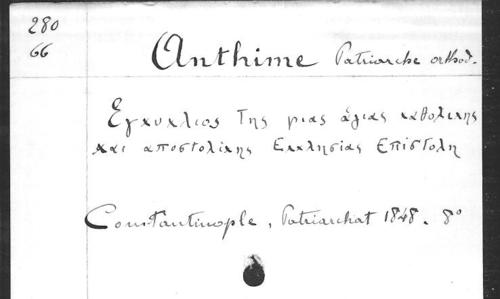 280
66
Anthime Patriarche orthod.
Εγκυκλιος της μιας άγιας καθολικης
και αποστολικης Εκκλησίας Επίστολη
Constantinople, Patriarchat 1848. 8°